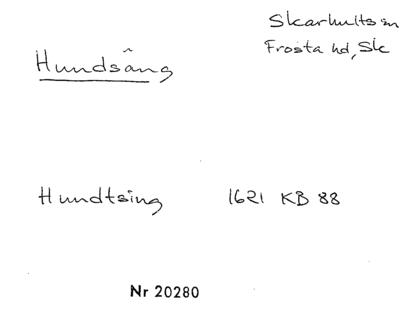 Skarhults sn
Frosta hd, Sk
Hundsång
Hundtsing 1621 KB 88
Nr 20280